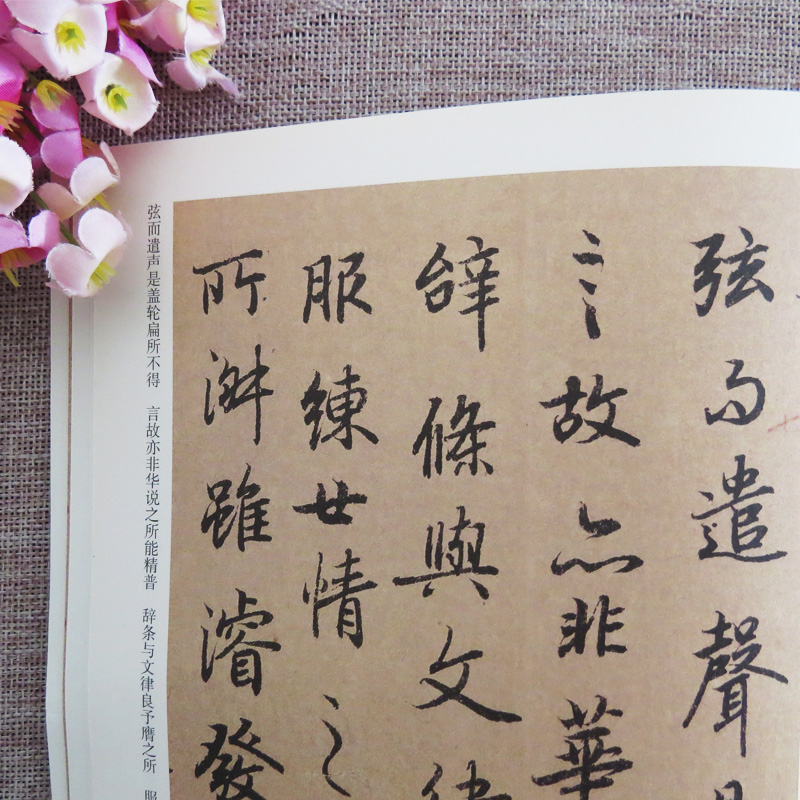 弦而遣聲
言故亦非華
辝條與文
服練世情之
所淑雖濬發
弦而遣声是盖轮扁所不得 言故亦非华说之所能精普 辞条与文律良予膺之所 服